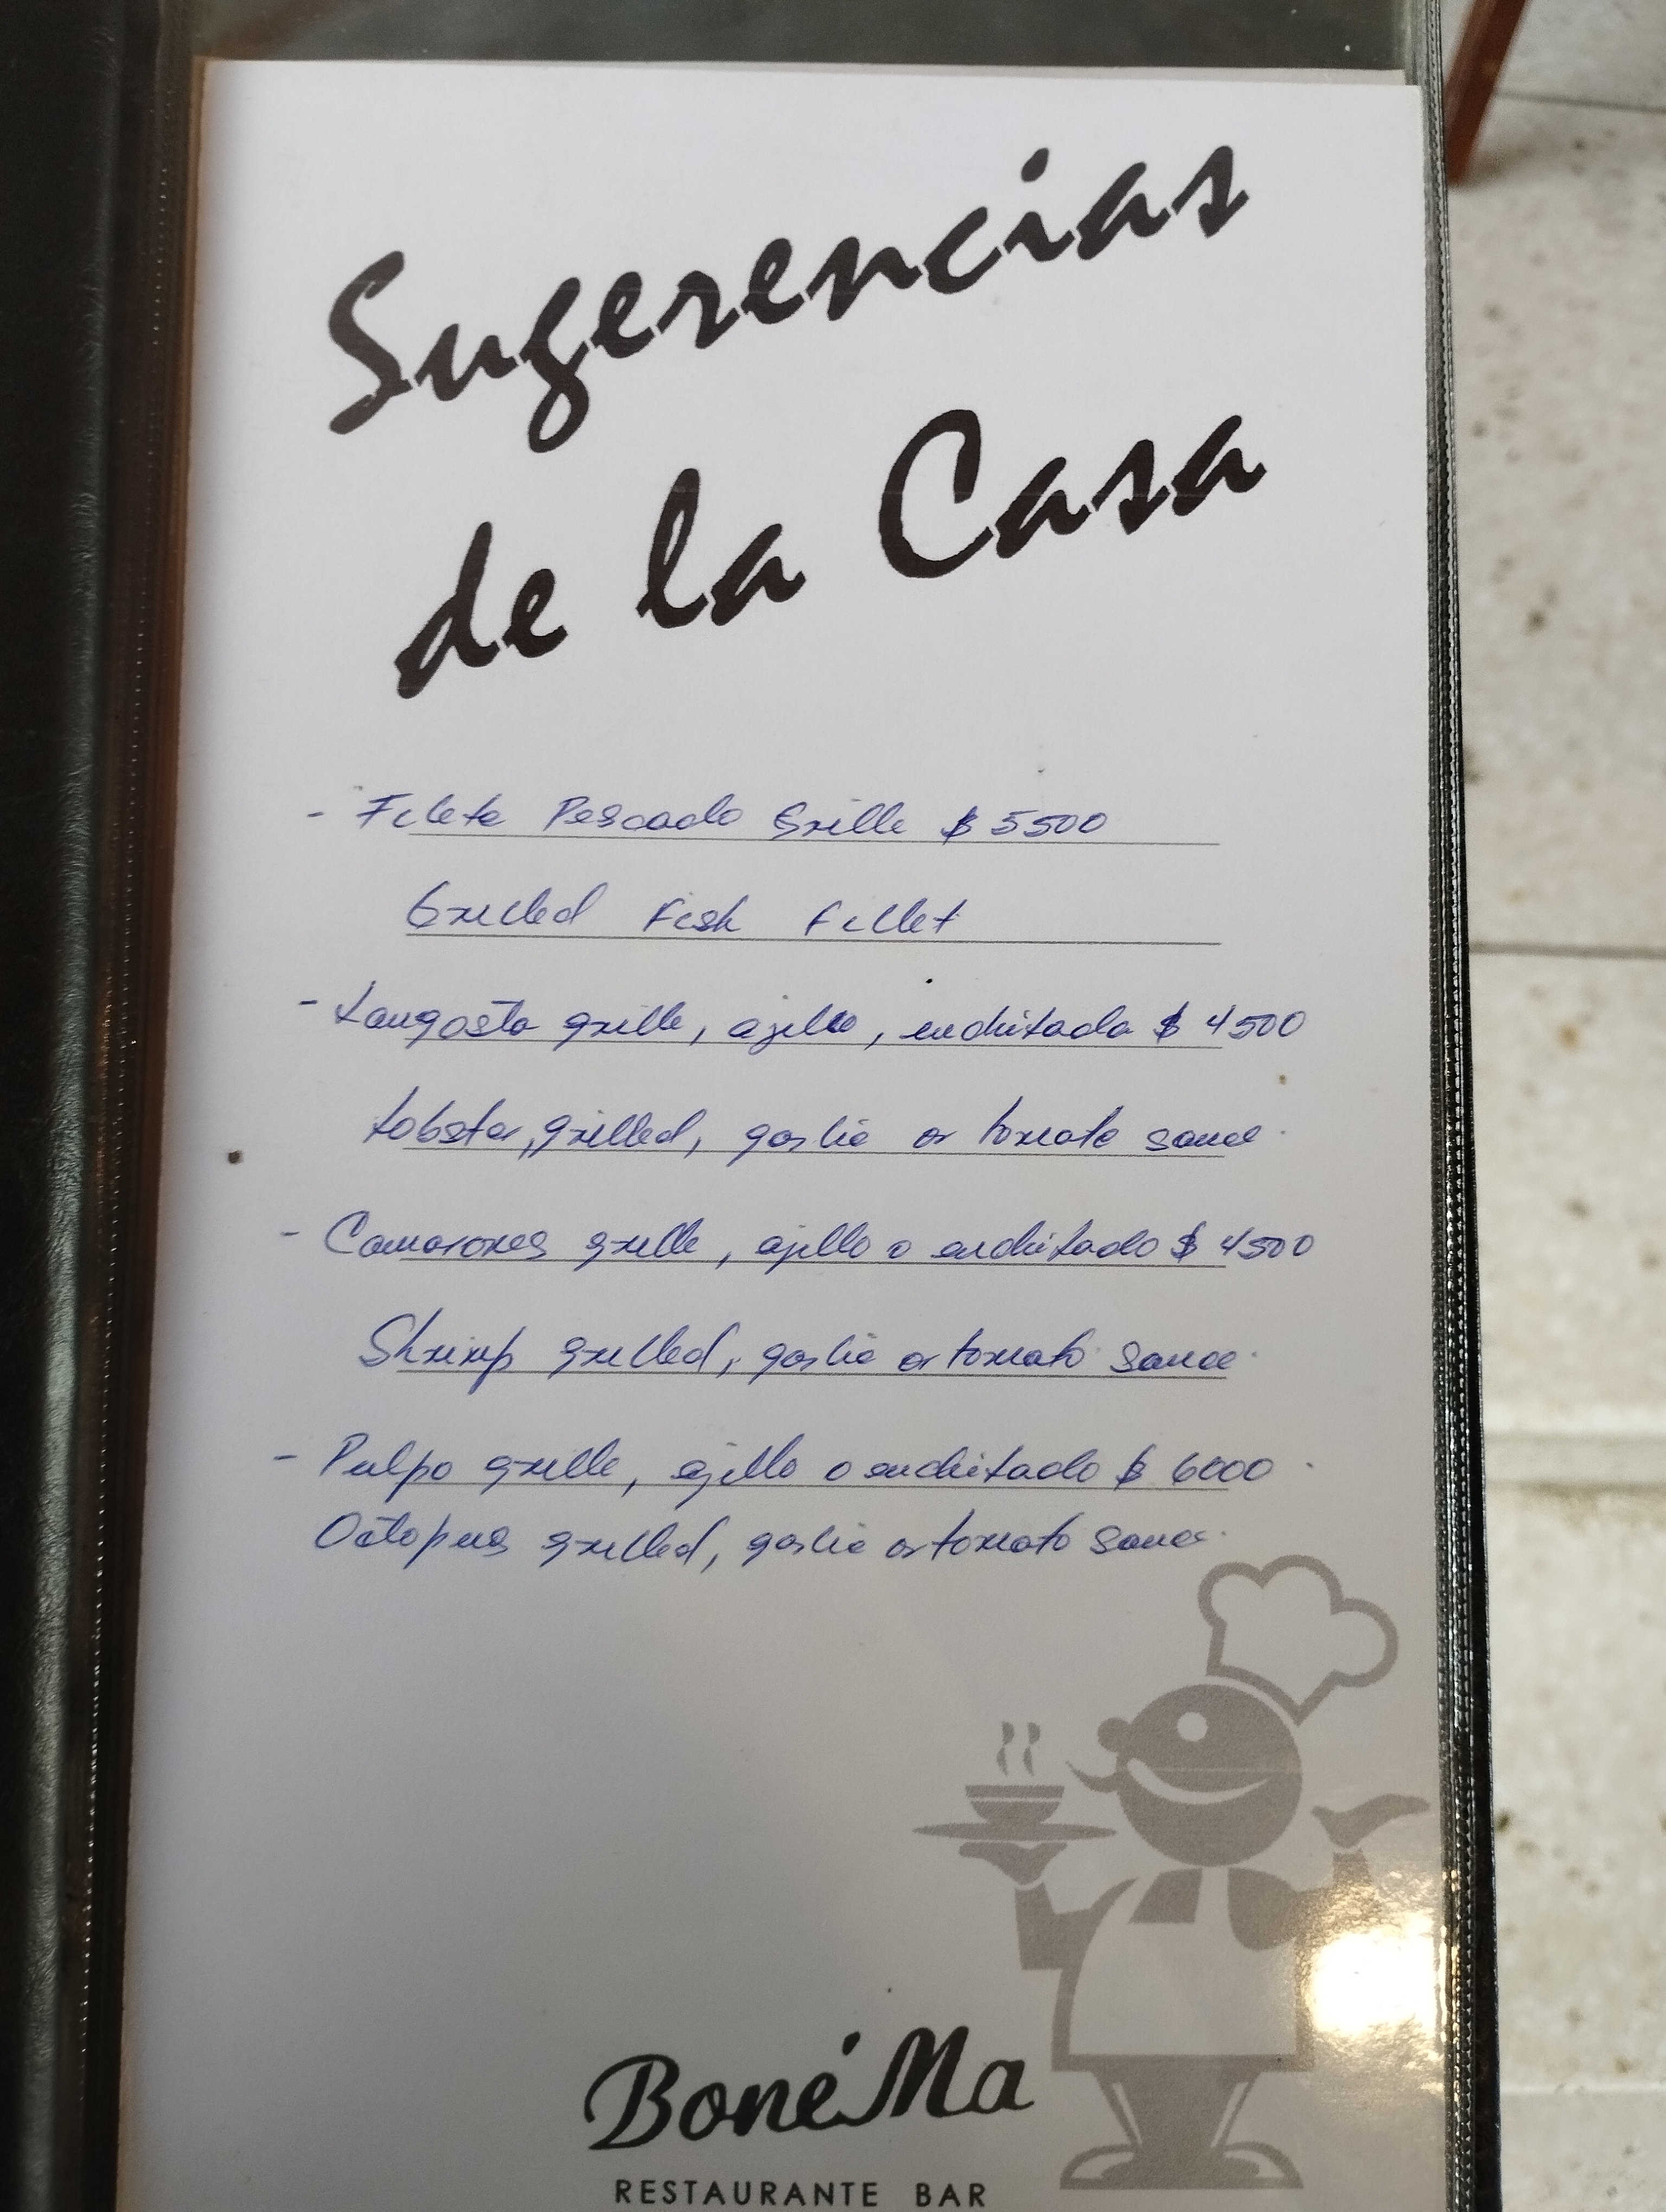 Sugerencias
de la Casa
- Filete Pescado Grille $ 5500
Grilled Fish Fillet
- Langosta grille, ajillo, enchilada $ 4500
Lobster, grilled, garlic or tomato sauce.
- Camarones grille, ajillo o enchilado $ 4500
Shrimp grilled, garlic or tomato sauce.
- Pulpo grille, ajillo o enchilado $ 6000
Octopus grilled, garlic or tomato sauce.
BonéMa
RESTAURANTE BAR